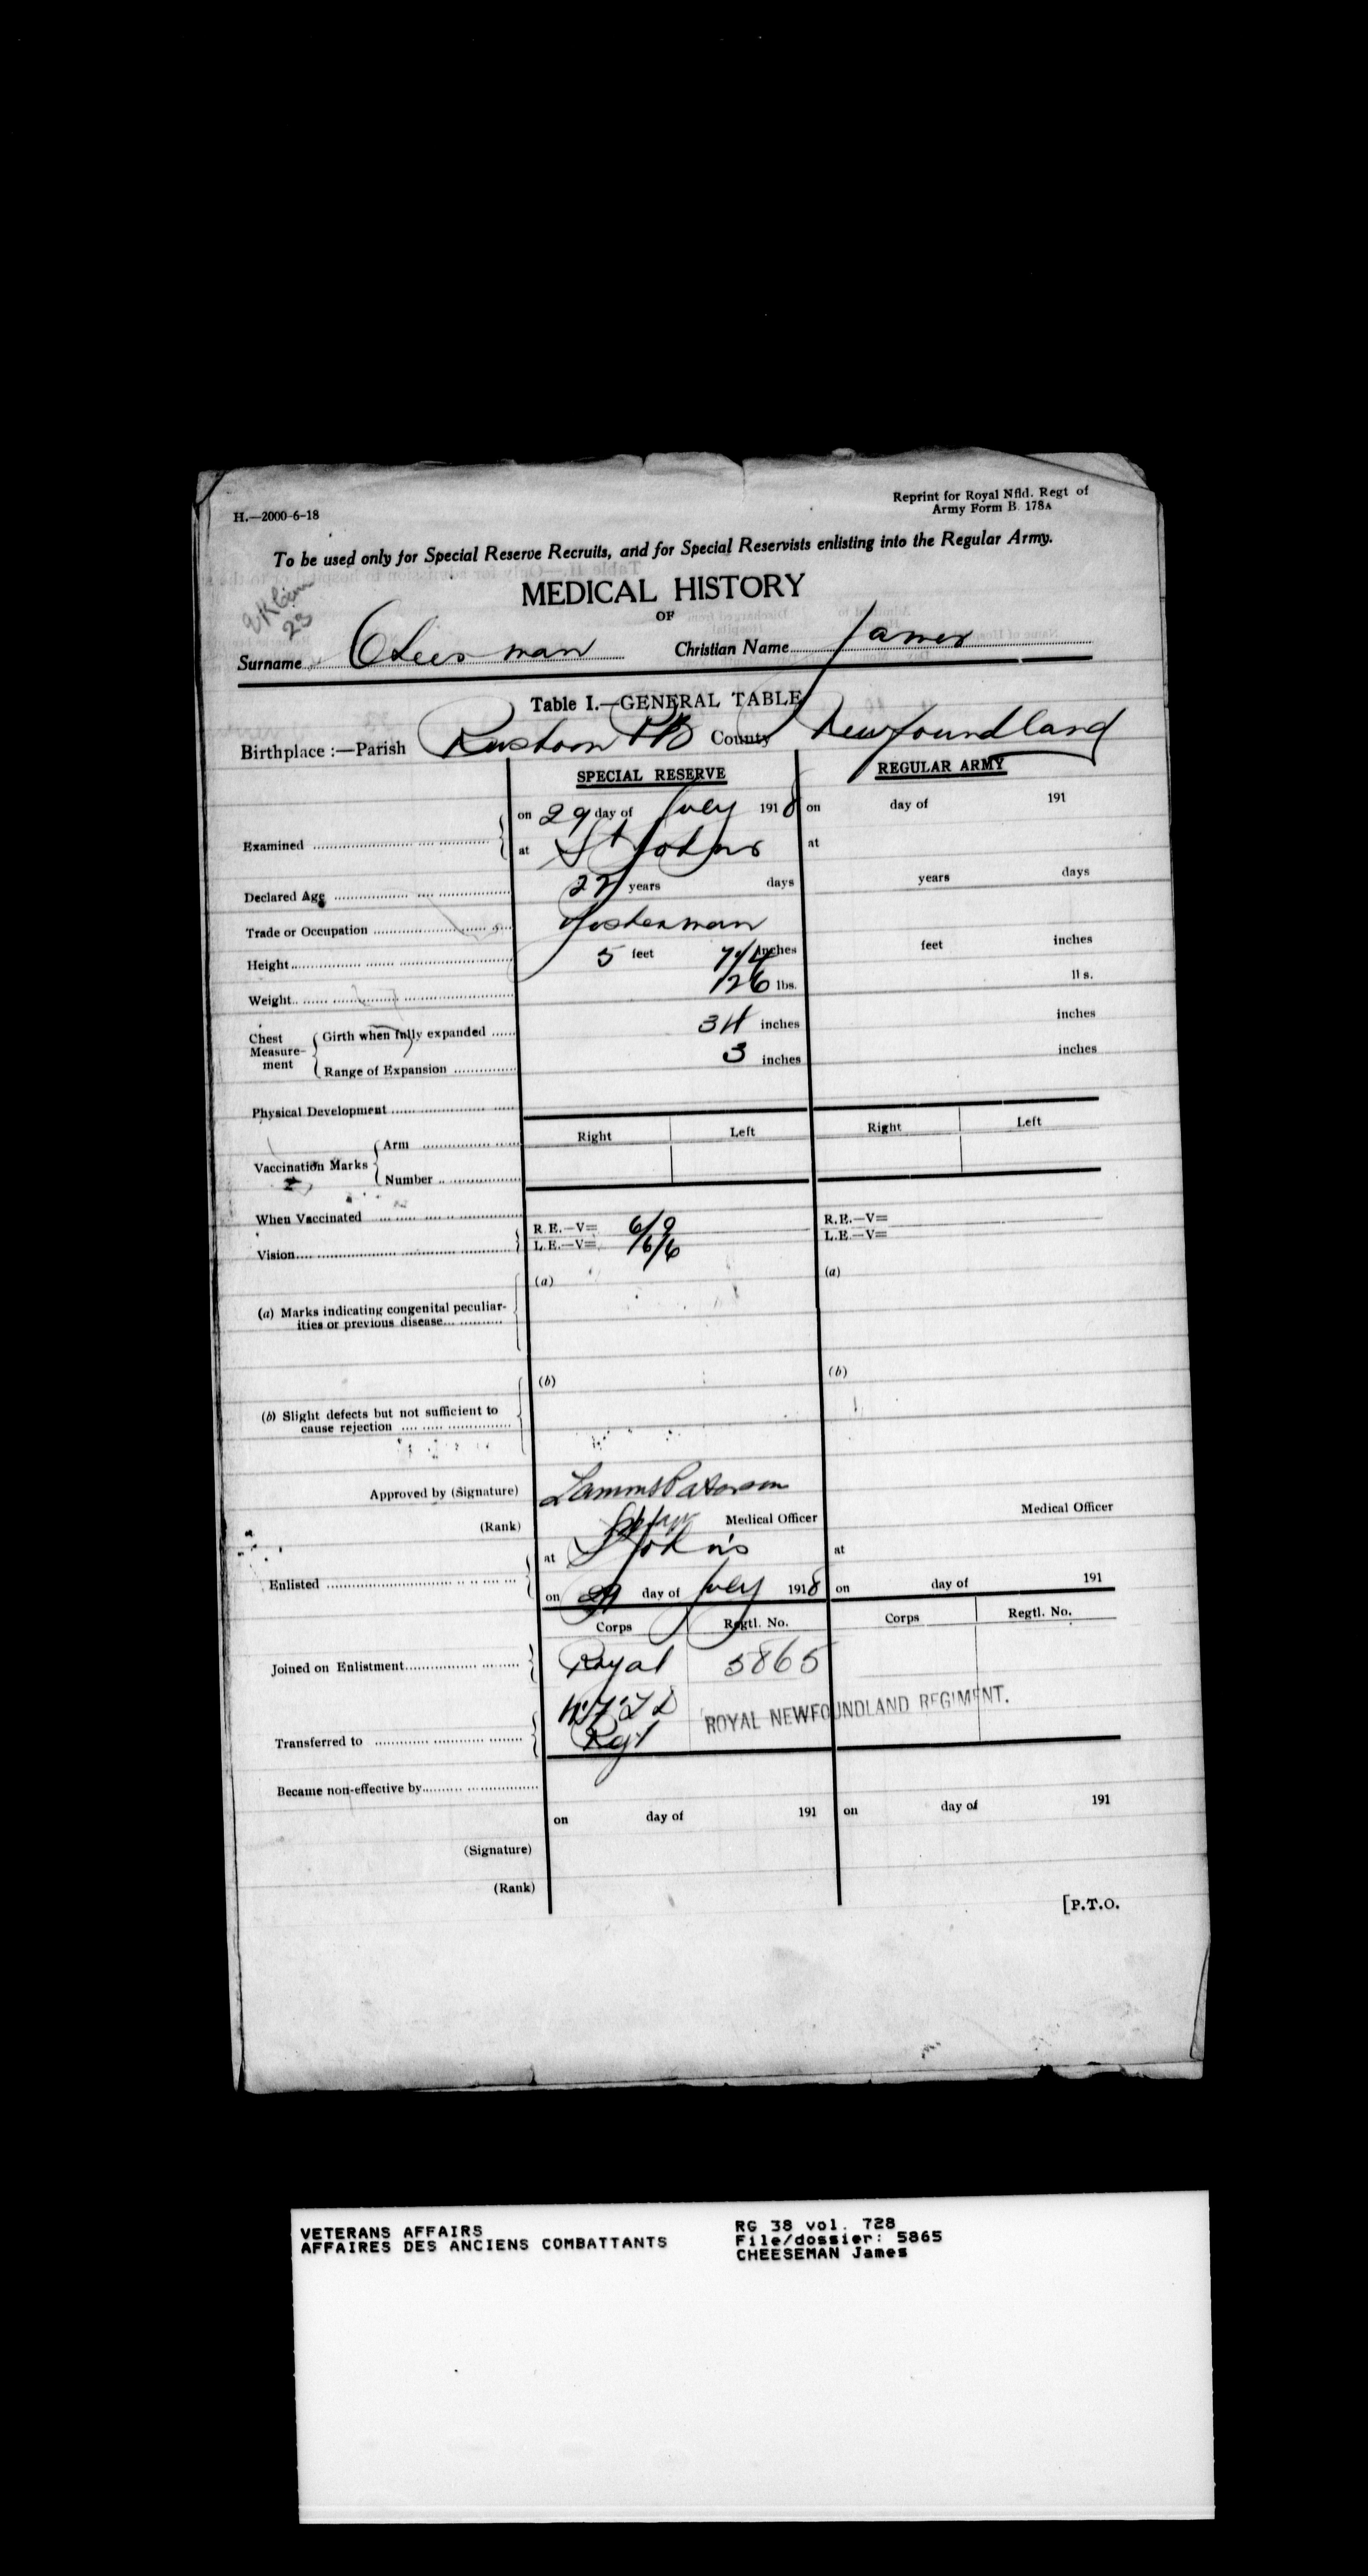 H.—2000-6-18
Reprint for Royal Nfld. Regt of
Army Form B 178A
To be used only for Special Reserve Recruits, and for Special Reservists enlisting into the Regular Army.
MEDICAL HISTORY
OF
23
Surname Cheesman Christian Name James
Table I.—GENERAL TABLE
Birthplace :—Parish Rushoon PB County Newfoundland
SPECIAL RESERVE REGULAR ARMY
Examined on 29 day of July 1918 on day of 191
at St Johns at
Declared Age 22 years days years days
Trade or Occupation Fisherman
Height 5 feet 7 1/4 inches feet inches
Weight 126 lbs. lls.
Chest Measurement Girth when fully expanded 34 inches inches
Range of Expansion 3 inches inches
Physical Development
Right Left Right Left
Vaccination Marks Arm
Number
When Vaccinated
Vision R.E.—V= 6/9 R.E.—V=
L.E.—V= 6/6 L.E.—V=
(a) Marks indicating congenital peculiar-
ities or previous disease (a) (a)
(b) Slight defects but not sufficient to
cause rejection (b) (b)
Approved by (Signature) Paterson
(Rank) Medical Officer Medical Officer
Enlisted at St John's at
on 29 day of July 1918 on day of 191
Corps Regtl. No. Corps Regtl. No.
Joined on Enlistment Royal 5865
Nfld
ROYAL NEWFOUNDLAND REGIMENT.
Transferred to Regt
Became non-effective by
on day of 191 on day of 191
(Signature)
(Rank)
[P.T.O.
VETERANS AFFAIRS
AFFAIRES DES ANCIENS COMBATTANTS
RG 38 vol. 728
File/dossier: 5865
CHEESEMAN James